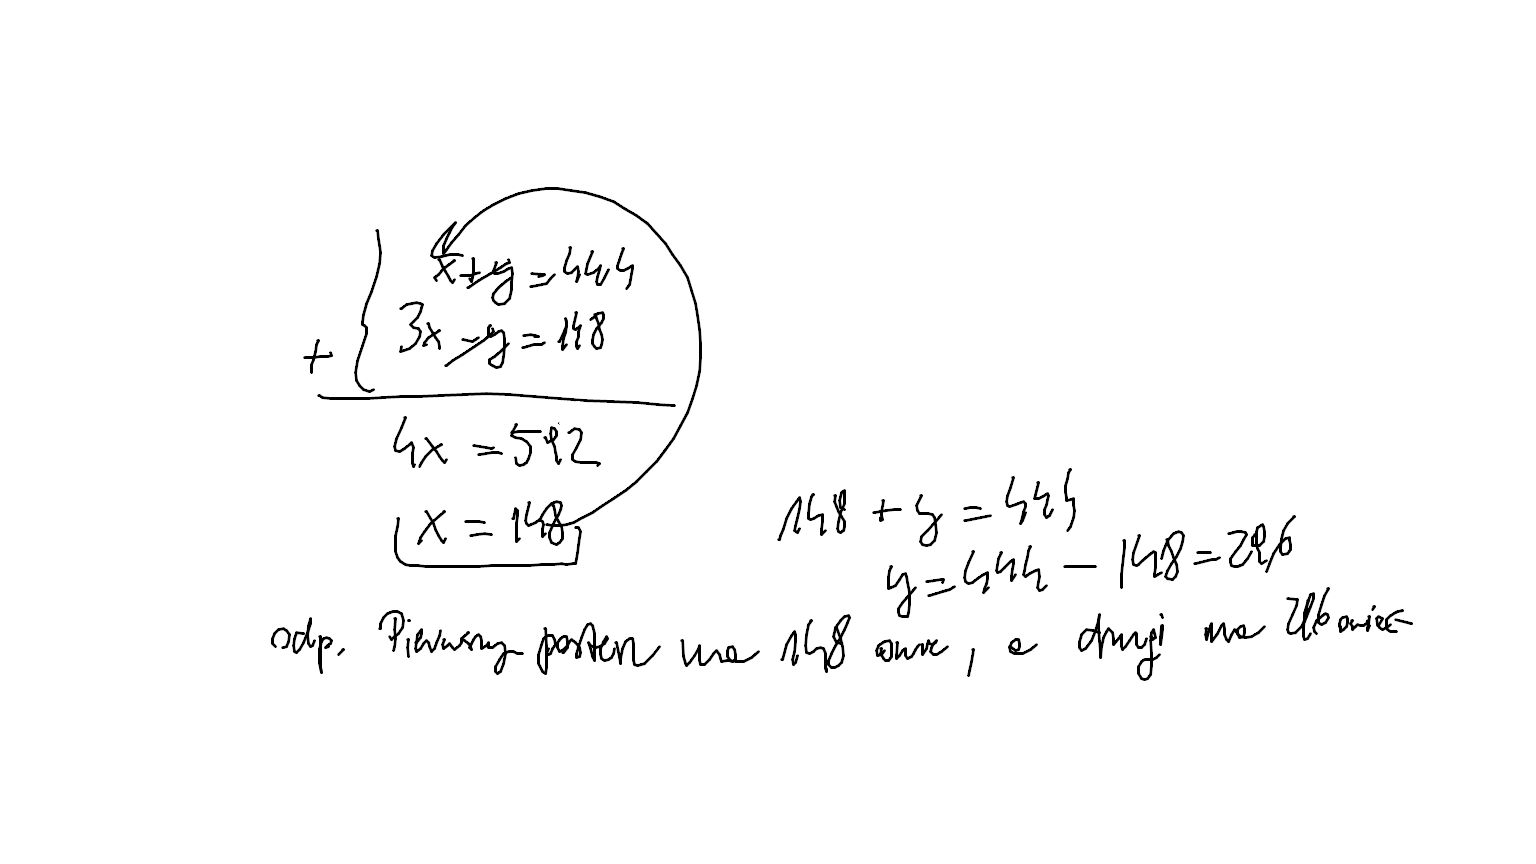 x+y=444
3x-y=148
+
4x=592
x=148
148+y=444
y=444-148=296
odp. Pierwszy pasterz ma 148 owiec, a drugi ma 296 owiec